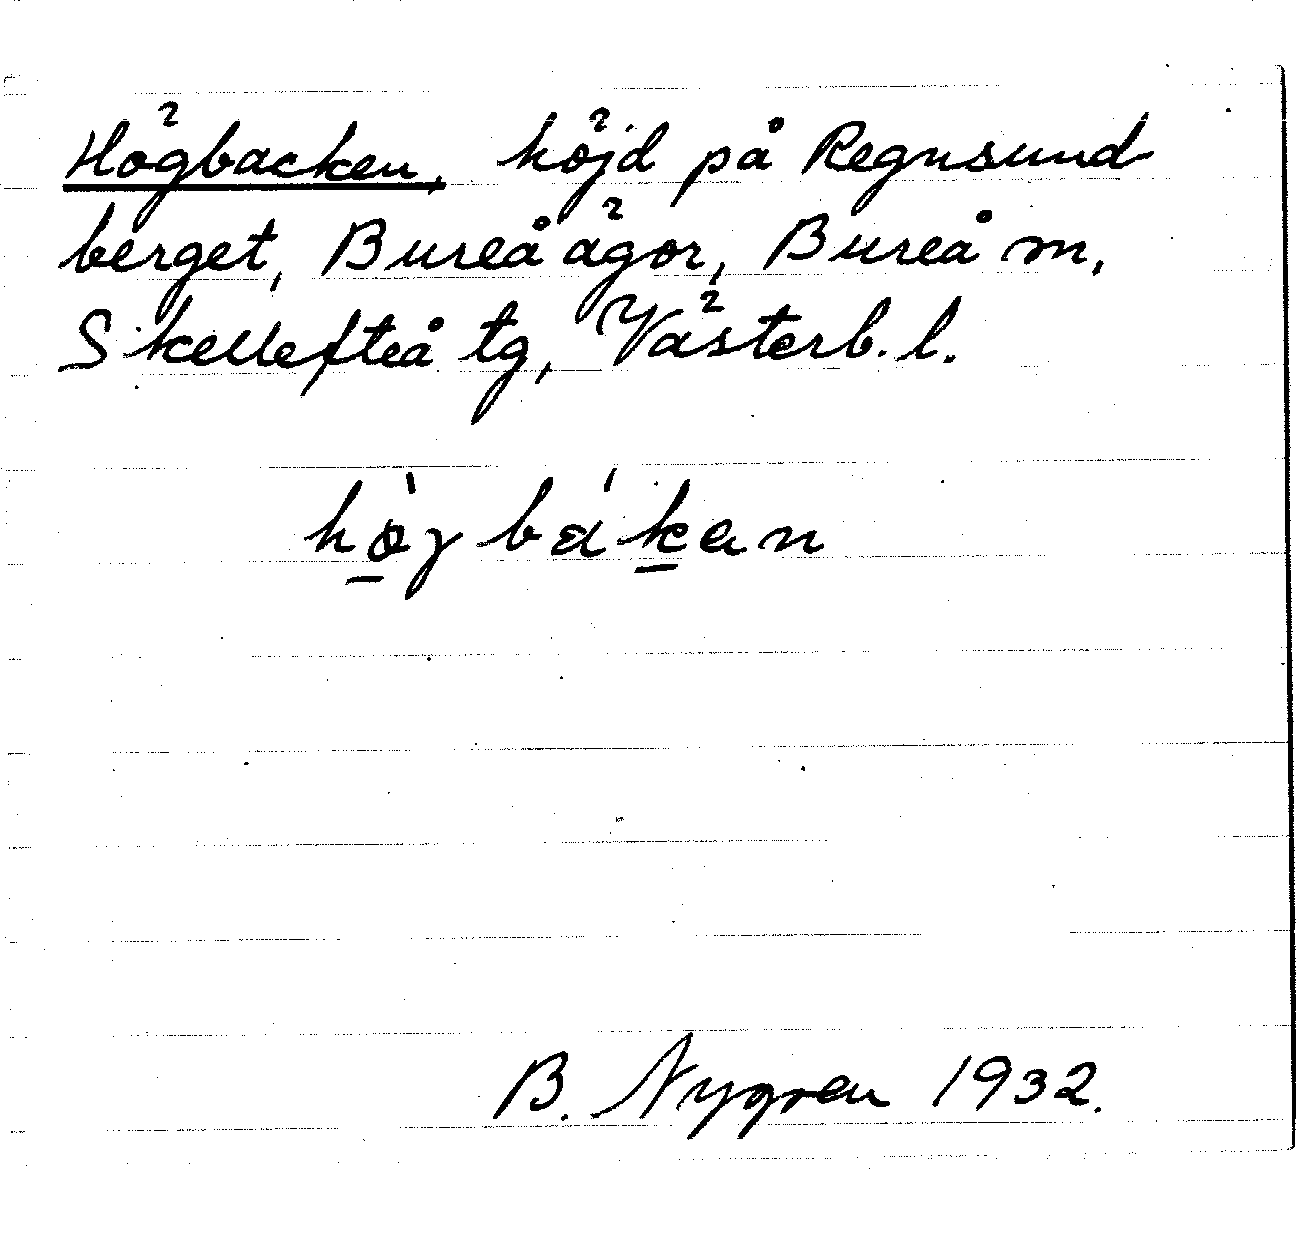 Högbacken, höjd på Regnsund
berget, Bureå ägor, Bureå m,
Skellefteå tg, Västerb. l.
hø̀ɡbákan
B. Nygren 1932.